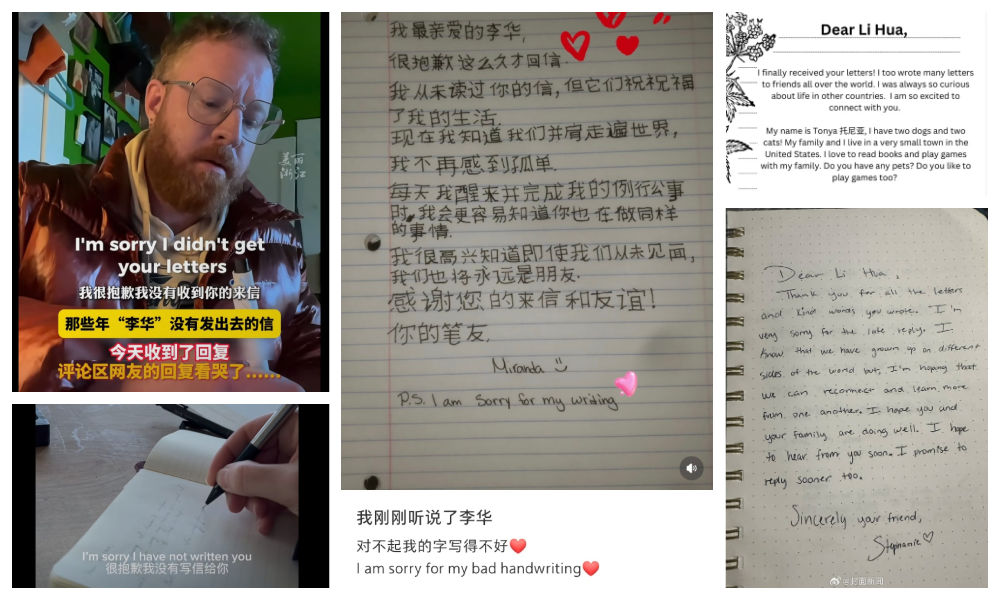 美丽
浙江
I'm sorry I didn't get
your letters
我很抱歉我没有收到你的来信
那些年“李华”没有发出去的信
今天收到了回复
评论区网友的回复看哭了......
I'm sorry I have not written you
很抱歉我没有写信给你
我最亲爱的李华,
很抱歉这么久才回信.
我从未读过你的信,但它们祝祝福
了我的生活.
现在我知道我们并肩走遍世界,
我不再感到孤单.
每天我醒来并完成我的例行公事
时,我会更容易知道你也在做同样
的事情.
我很高兴知道即使我们从未见面,
我们也将永远是朋友.
感谢您的来信和友谊!
你的笔友,
Miranda
P.S. I am sorry for my writing
我刚刚听说了李华
对不起我的字写得不好❤️
I am sorry for my bad handwriting❤️
Dear Li Hua,
I finally received your letters! I too wrote many letters
to friends all over the world. I was always so curious
about life in other countries. I am so excited to
connect with you.
My name is Tonya 托尼亚, I have two dogs and two
cats! My family and I live in a very small town in the
United States. I love to read books and play games
with my family. Do you have any pets? Do you like to
play games too?
Dear Li Hua,
Thank you for all the letters
and kind words you wrote. I'm
very sorry for the late reply. I
know that we have grown up on different
sides of the world but, I'm hoping that
we can reconnect and learn more
from one another. I hope you and
your family are doing well. I hope
to hear from you soon. I promise to
reply sooner too.
Sincerely your friend,
Stephanie♡
@封面新闻